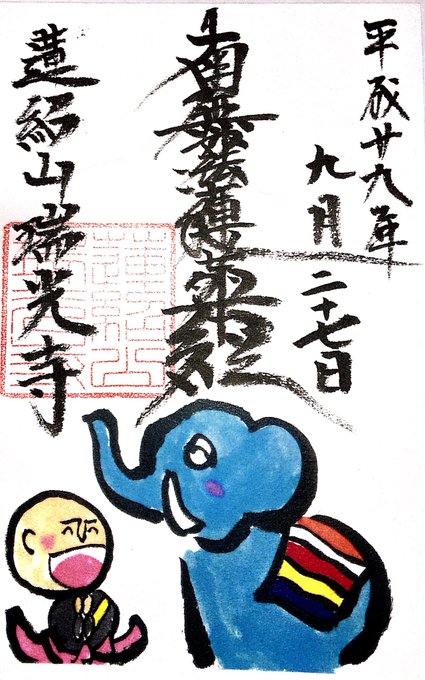 平成廿九年
九月二十七日
南無妙法蓮華経
蓮紹山瑞光寺